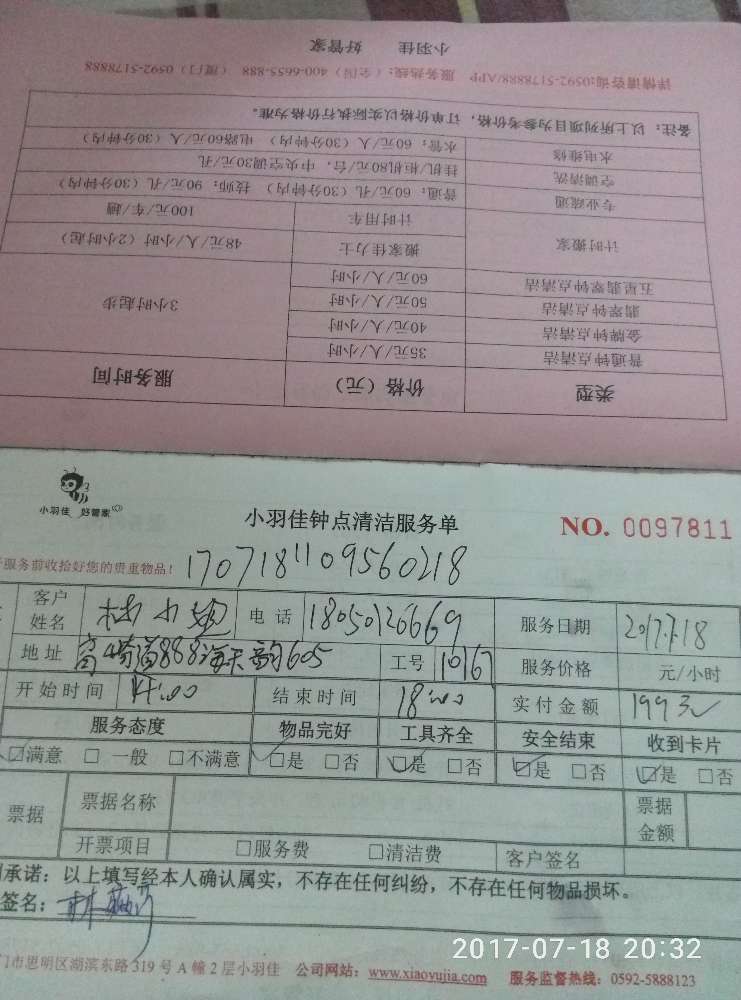 小羽佳 好管家
详情请咨询:0592-5178888/APP 服务热线:(全国)400-6655-888 (厦门)0592-5178888
类型 价格(元) 服务时间
普通钟点清洁 35元/人/小时 3小时起步
金牌钟点清洁 40元/人/小时
翡翠钟点清洁 50元/人/小时
五星翡翠钟点清洁 60元/人/小时
计时搬家 搬家佳力士 48元/人/小时(2小时起)
计时用车 100元/车/趟
专业疏通 普通:60元/孔(30分钟内) 技师:90元/孔(30分钟内)
空调清洗 挂机/柜机80元/台,中央空调30元/孔
水电维修 水管:60元/人(30分钟内) 电路60元/人(30分钟内)
备注:以上所列项目为参考价格,订单价格以实际执行价格为准。
小羽佳 好管家
小羽佳钟点清洁服务单 NO. 0097811
服务前收拾好您的贵重物品! 1707181109560218
客户姓名 林小 电话 18050126669 服务日期 2017.7.18
地址 高崎 888海天 605 工号 10167 服务价格 元/小时
开始时间 14:00 结束时间 18:00 实付金额 199元
服务态度 物品完好 工具齐全 安全结束 收到卡片
☑满意 □一般 □不满意 ☑是 □否 ☑是 □否 ☑是 □否 ☑是 □否
票据 票据名称 票据金额
开票项目 □服务费 □清洁费 客户签名
承诺:以上填写经本人确认属实,不存在任何纠纷,不存在任何物品损坏。
签名:林
门市思明区湖滨东路319号A幢2层小羽佳 公司网站:www.xiaoyujia.com 服务监督热线:0592-5888123
2017-07-18 20:32